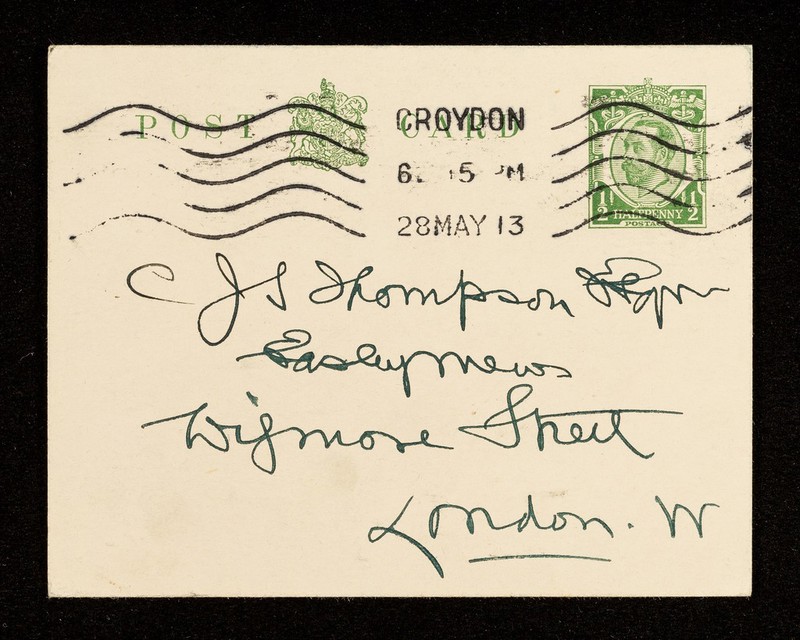 POST CARD
CROYDON
28MAY 13
1/2 HALFPENNY 1/2
POSTAGE
C J S Thompson Esqre
Easley Mews
Wigmore Street
London. W